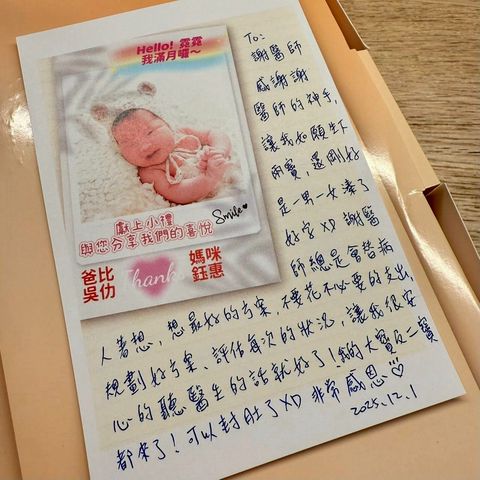 Hello! 霓霓
我滿月囉～
Smile
獻上小禮
與您分享我們的喜悅
爸比
吳仂
Thanks
媽咪
鈺惠
To:
謝醫師
感謝謝
醫師的神手,
讓我如願生下
兩寶,還剛好
是一男一女湊了
好字XD 謝醫
師總是會替病
人著想,想最好的方案,不要花不必要的支出,
規劃好方案、評估每次的狀況,讓我很安
心的聽醫生的話就好了!我的大寶及二寶
都來了!可以封肚了XD 非常感恩
2025.12.1